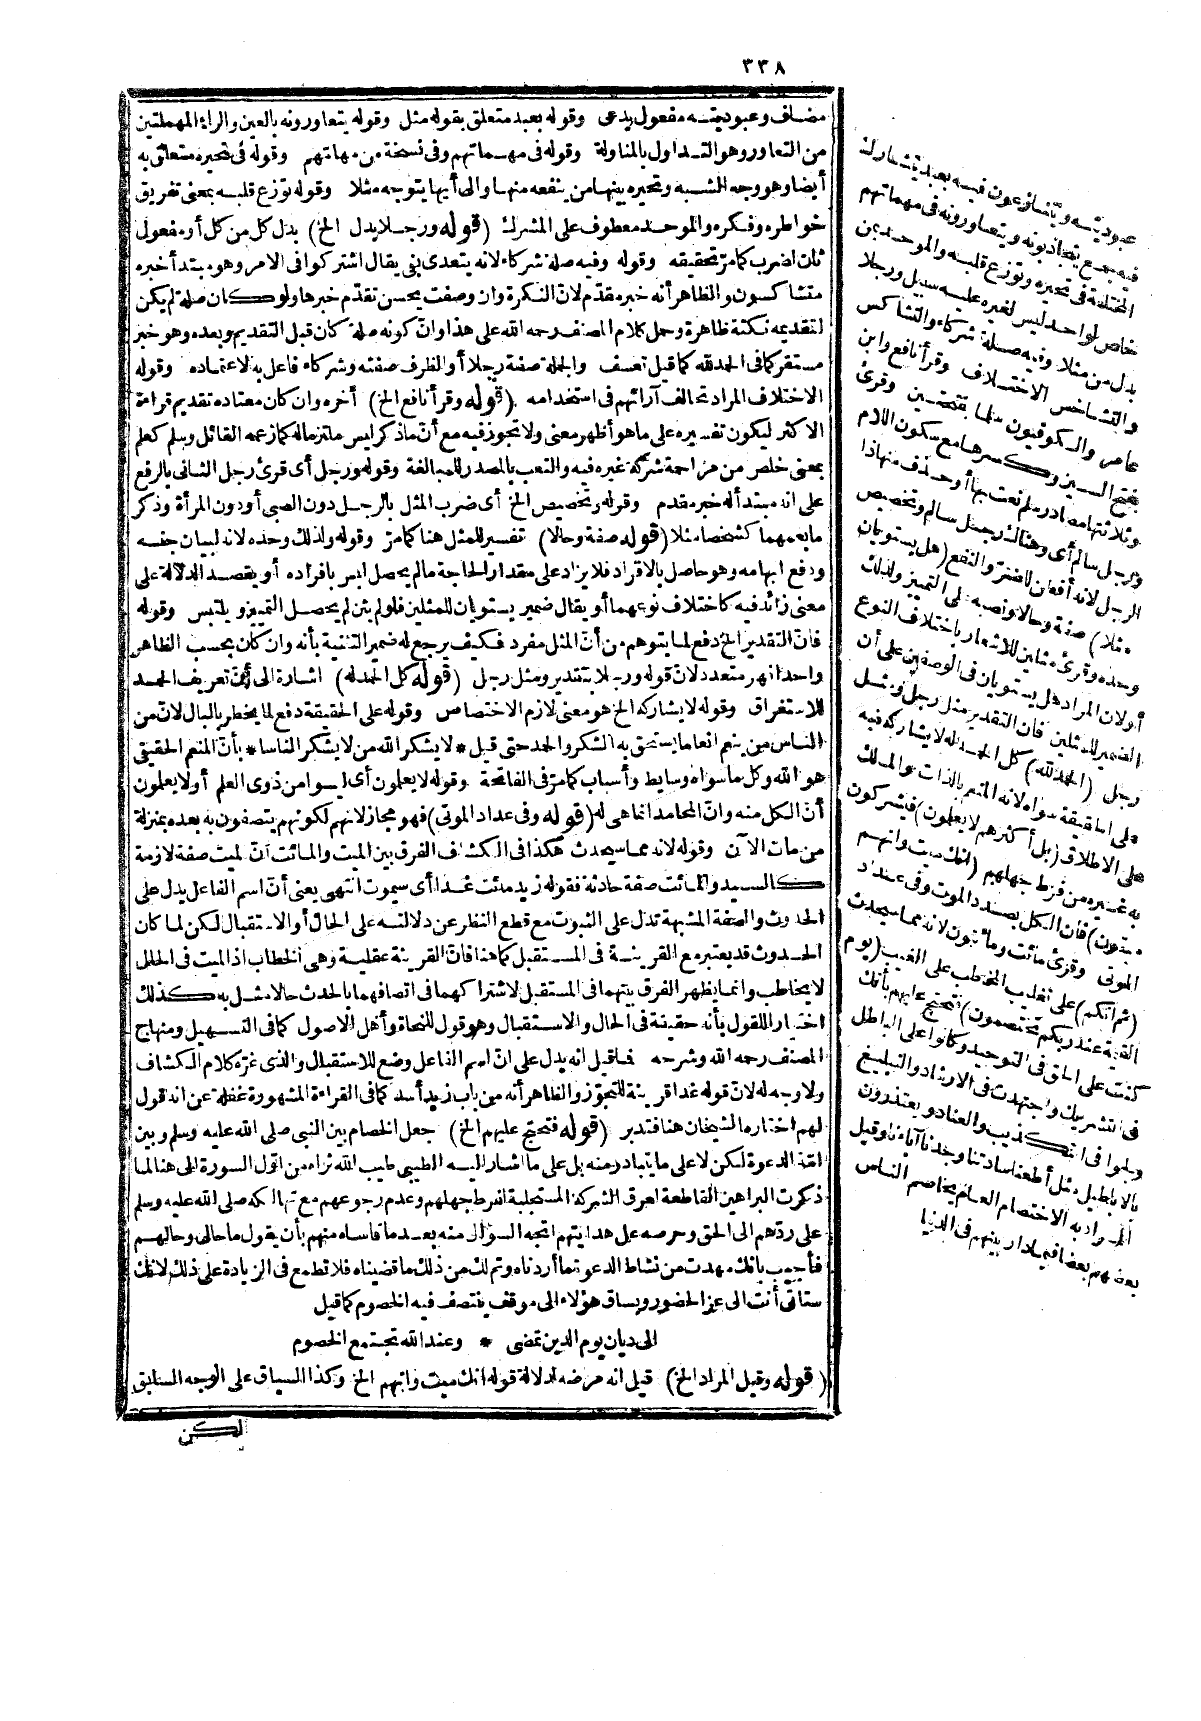 ٣٣٨
مضاف وعبوديته مفعول يدعى وقوله بعبد متعلق بقوله مثل وقوله يتعاورونه بالعين والراء المهملتين
من التعاور وهو التداول بالمناولة وقوله فى مهماتهم وفى نسخة من مهاتهم وقوله فى تحيره متعلق به
أيضا وهو وجه الشبه وتحيره بينها من ينفعه منها والى أيها يتوجه مثلا وقوله توزع قلبه بمعنى تفريق
خواطره وفكره والموحد معطوف على المشرك (قوله ورجلا بدل الخ) بدل كل من كل أو مفعولى
ثان لضرب كما مرّ تحقيقه وقوله وفيه صلة شركاء لانه يتعدى بفى يقال اشتركوا فى الامر وهو مبتدأ خبره
متشاكسون والظاهر أنه خبر مقدّم لانّ النكرة وان وصفت يحسن تقدّم خبرها ولو كان صلة لم يكن
لتقديمه نكتة ظاهرة وحمل كلام المصنف رحمه الله على هذا وانّ كونه صلة كان قبل التقديم وبعده وهو خبر
مستقر كما فى الحمد لله كما قيل تعسف والجملة صفة رجلا أو الظرف صفته وشركاء فاعل به لاعتماده وقوله
الاختلاف المراد تخالف آرائهم فى استخدامه (قوله وقرأ نافع الخ) أخره وان كان معتاده تقديم قراءة
الاكثر ليكون تفسيره على ما هو أظهر معنى ولا تجوز فيه مع أنّ ما ذكر ليس ملتزما له كما زعمه القائل وسلم كعلم
بمعنى خلص من مزاحمة شركة غيره فيه والتعب بالمصدر للمبالغة وقوله ورجل أى قرئ رجل الثانى بالرفع
على انه مبتدأ له خبر مقدم وقوله وتخصيص الخ أى ضرب المثل بالرجل دون الصبى أو دون المرأة وذكر
ما يعمهما كشخصا مثلا (قوله صفة وحالا) تفسير للمثل هنا كما مرّ وقوله ولذلك وحده لانه لبيان جنسه
ودفع ابهامه وهو حاصل بالافراد فلا يزاد على مقدار الحاجة ما لم يحصل لبس بافراده أو يقصد الدلالة على
معنى زائد فيه كاختلاف نوعهما أو يقال ضمير يستويان للمثلين فلو لم يثن لم يحصل التمييز ويلتبس وقوله
فانّ التقدير الخ دفع لما يتوهم من أنّ المثل مفرد فكيف يرجع له ضمير التثنية بأنه وان كان بحسب الظاهر
واحدا نهر متعدد لانّ قوله ورجلا بتقدير ومثل رجل (قوله كل الحمد له) اشارة الى أنّ تعريف الحمد
للاستغراق وقوله لا يشاركه الخ هو معنى لازم الاختصاص وقوله على الحقيقة دفع لما يخطر بالبال لانّ من
الناس من ينعم انعاما يستحق به الشكر والحمد حتى قيل * لا يشكر الله من لا يشكر الناسا * بأنّ المنعم الحقيقى
هو الله وكل ما سواه وسايط وأسباب كما مرّ فى الفاتحة وقوله لا يعلمون أى ليسوا من ذوى العلم أو لا يعلمون
أنّ الكل منه وانّ المحامد انما هى له (قوله وفى عداد الموتى) فهو مجاز لانهم لكونهم يتصفون به بعده بمنزلة
من مات الآن وقوله لانه مما سيحدث هكذا فى الكشاف الفرق بين الميت والمائت انّ الميت صفة لازمة
كالسيد والمائت صفة حادثة فقوله زيد مائت غدا أى سيموت انتهى يعنى أنّ اسم الفاعل يدل على
الحدوث والصفة المشبهة تدل على الثبوت مع قطع النظر عن دلالته على الحال أو الاستقبال لكن لما كان
الحدوث قد يعتبر مع القرينة فى المستقبل كما هنا فانّ القرينة عقلية وهى الخطاب اذ الميت فى الحال
لا يخاطب وانما يظهر الفرق بينهما فى المستقبل لاشتراكهما فى اتصافهما بالحدث حالا مثل به كذلك
اختيارا للقول بأنه حقيقة فى الحال والاستقبال وهو قول للنحاة وأهل الاصول كما فى التسهيل ومنهاج
المصنف رحمه الله وشرحه فما قيل انه يدل على انّ اسم الفاعل وضع للاستقبال والذى غرّه كلام الكشاف
ولا وجه له لانّ قوله غدا قرينة للتجوّز والظاهر أنه من باب زيد أسد كما فى القراءة المشهورة غفلة عن انه قول
لهم اختاره الشيخان هنا فتدبر (قوله فتحتج عليهم الخ) جعل الخصام بين النبى صلى الله عليه وسلم وبين
امّة الدعوة لكن لا على ما يتبادر منه بل على ما اشار اليه الطيبى طيب الله ثراه من انّ اوّل السورة الى هنا لما
ذكرت البراهين القاطعة لعرق الشركة المستحلبة لفرط جهلهم وعدم رجوعهم مع تهالكه صلى الله عليه وسلم
على ردّهم الى الحق وحرصه على هدايتهم اتجه السؤال منه بعدما قاساه منهم بأن يقول ما حالى وحالهم
فأجيب بانك مهدت من نشاط الدعوة ما أردناه وتم لك من ذلك ما قضيناه فلا تطمع فى الزيادة على ذلك لانك
ستاتى أنت الى عز الحضور ويساق هؤلاء الى موقف ينتصف فيه الخصوم كما قيل
الى ديان يوم الدين نمضى * وعند الله تجتمع الخصوم
(قوله وقيل المراد الخ) قيل انه مرضه لدلالة قوله انك ميت وانهم الخ وكذا السياق على الوجه السابق
لكن
عبوديته ويتنازعون فيه بعبد يتشارك
فيه جمع يتجاذبونه ويتعاورونه فى مهماتهم
المختلفة فى تحيره وتوزع قلبه والموحد بمن
خلص لواحد ليس لغيره عليه سبيل ورجلا
بدل من مثلا وفيه صلة شركاء والتشاكس
والتشاخص الاختلاف وقرأ نافع وابن
عامر والكوفيون سلما بفتحتين وقرئ
بفتح السين وكسرها مع سكون اللام
وثلاثتها مصادر سلم نعت بها أو حذف منها ذا
ورجل سالم أى وهناك رجل سالم وتخصيص
الرجل لانه أفطن للضرّ والنفع (هل يستويان
مثلا) صفة وحالا ونصبه على التمييز ولذلك
وحده وقرئ مثلين للاشعار باختلاف النوع
أو لانّ المراد هل يستويان فى الوصفين على أن
الضمير للمثلين فانّ التقدير مثل رجل ومثل
رجل (الحمد لله) كل الحمد له لا يشاركه فيه
على الحقيقة سواه لانه المنعم بالذات والمالك
على الاطلاق (بل أكثرهم لا يعلمون) فيشركون
به غيره من فرط جهلهم (انك ميت وانهم
ميتون) فان الكل بصدد الموت وفى عداد
الموتى وقرئ مائت ومائتون لانه مما سيحدث
(ثم انكم) على تغليب المخاطب على الغيب (يوم
القيمة عند ربكم تختصمون) فتحتج عليهم بأنك
كنت على الحق فى التوحيد وكانوا على الباطل
فى التشريك واجتهدت فى الارشاد والتبليغ
ولجوا فى التكذيب والعناد ويعتذرون
بالاباطيل مثل أطعنا سادتنا وجدنا آباءنا وقيل
المراد به الاختصام العام يخاصم الناس
بعضهم بعضا فيما دار بينهم فى الدنيا